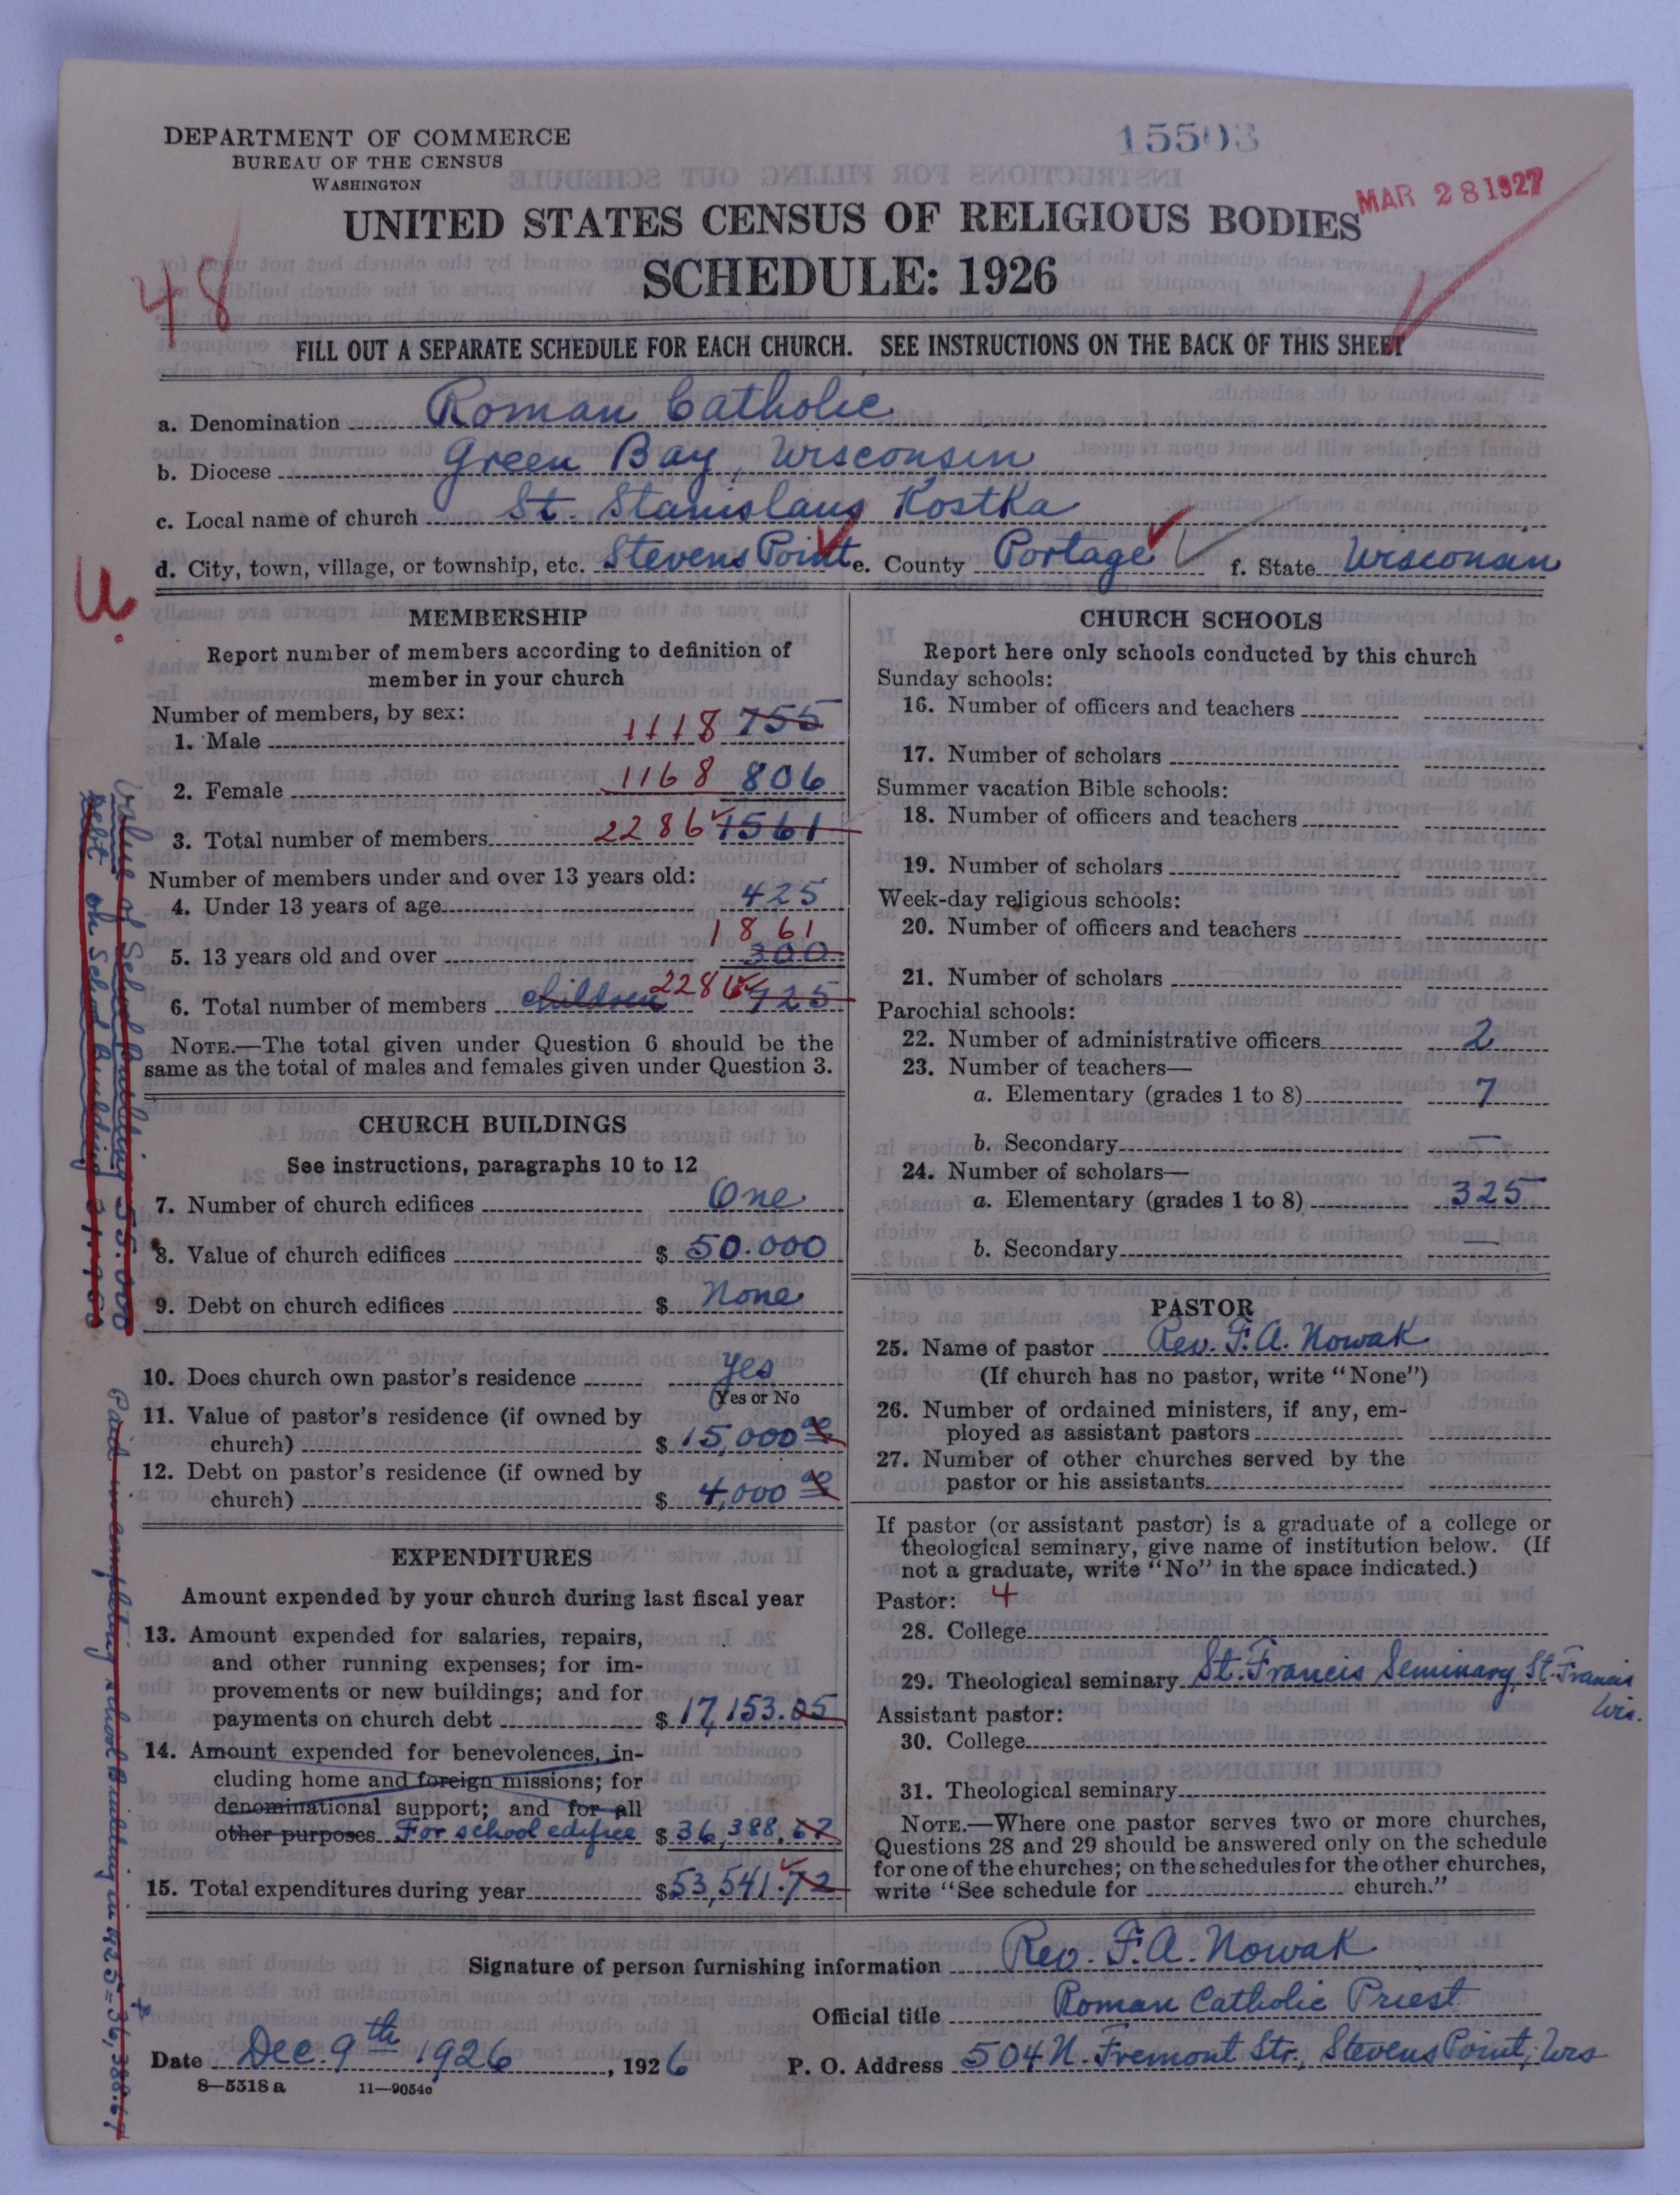 DEPARTMENT OF COMMERCE
BUREAU OF THE CENSUS
WASHINGTON
15503
MAR 28 1927
UNITED STATES CENSUS OF RELIGIOUS BODIES
SCHEDULE: 1926
48
FILL OUT A SEPARATE SCHEDULE FOR EACH CHURCH. SEE INSTRUCTIONS ON THE BACK OF THIS SHEET
a. Denomination Roman Catholic
b. Diocese Green Bay, Wisconsin
c. Local name of church St. Stanislaus Kostka
d. City, town, village, or township, etc. Stevens Point e. County Portage f. State Wisconsin
U.
MEMBERSHIP
Report number of members according to definition of
member in your church
Number of members, by sex:
1. Male 1118 755
2. Female 1168 806
3. Total number of members 2286 1561
Number of members under and over 13 years old:
4. Under 13 years of age 425
1861
5. 13 years old and over 300
6. Total number of members children 2286 725
NOTE.—The total given under Question 6 should be the
same as the total of males and females given under Question 3.
CHURCH BUILDINGS
See instructions, paragraphs 10 to 12
7. Number of church edifices One
8. Value of church edifices $ 50.000
9. Debt on church edifices $ None
10. Does church own pastor's residence Yes
(Yes or No
11. Value of pastor's residence (if owned by
church) $ 15,000 00
12. Debt on pastor's residence (if owned by
church) $ 4,000 00
EXPENDITURES
Amount expended by your church during last fiscal year
13. Amount expended for salaries, repairs,
and other running expenses; for im-
provements or new buildings; and for
payments on church debt $ 17,153.05
14. Amount expended for benevolences, in-
cluding home and foreign missions; for
denominational support; and for all
other purposes For school edifice $ 36,388.67
15. Total expenditures during year $ 53,541.72
CHURCH SCHOOLS
Report here only schools conducted by this church
Sunday schools:
16. Number of officers and teachers
17. Number of scholars
Summer vacation Bible schools:
18. Number of officers and teachers
19. Number of scholars
Week-day religious schools:
20. Number of officers and teachers
21. Number of scholars
Parochial schools:
22. Number of administrative officers 2
23. Number of teachers—
a. Elementary (grades 1 to 8) 7
b. Secondary —
24. Number of scholars—
a. Elementary (grades 1 to 8) 325
b. Secondary —
PASTOR
25. Name of pastor Rev. F. A. Nowak
(If church has no pastor, write "None")
26. Number of ordained ministers, if any, em-
ployed as assistant pastors
27. Number of other churches served by the
pastor or his assistants
If pastor (or assistant pastor) is a graduate of a college or
theological seminary, give name of institution below. (If
not a graduate, write "No" in the space indicated.)
Pastor: 4
28. College
29. Theological seminary St. Francis Seminary, St. Francis
Wis.
Assistant pastor:
30. College
31. Theological seminary
NOTE.—Where one pastor serves two or more churches,
Questions 28 and 29 should be answered only on the schedule
for one of the churches; on the schedules for the other churches,
write "See schedule for church."
Signature of person furnishing information Rev. F. A. Nowak
Official title Roman Catholic Priest
Date Dec. 9th 1926, 1926 P. O. Address 504 N. Fremont Str., Stevens Point, Wis
8—5518 a 11—9054c
Value of School building 55.000
debt on School building
Paid in completing school Building in 1925= 36,388.67